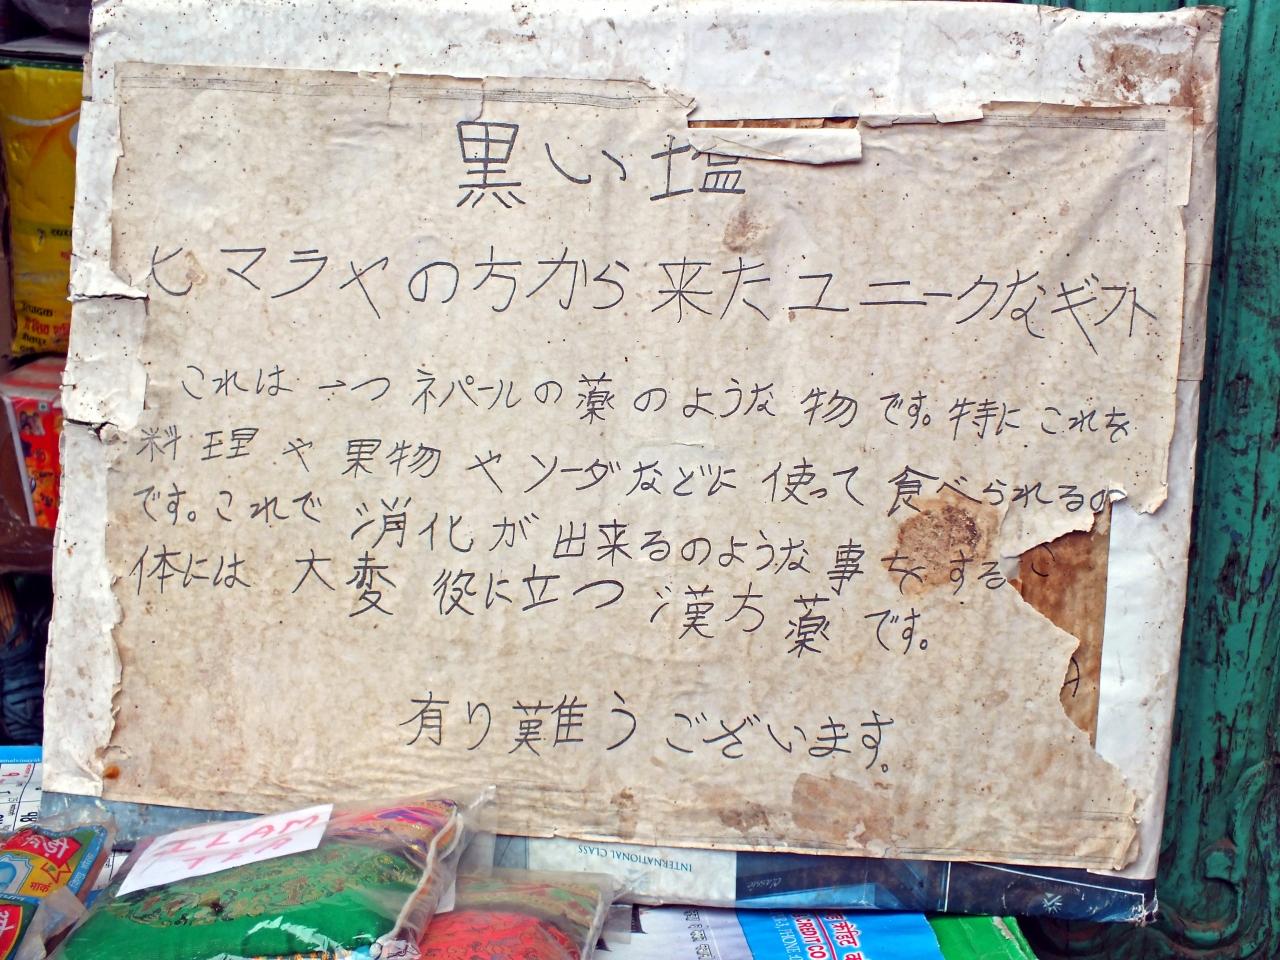 黒い塩
ヒマラヤの方から来たユニークなギフト
これは一つネパールの薬のような物です。特にこれを
料理や果物やソーダなどに使って食べられるの
です。これで消化が出来るのような事をする
体には大変役に立つ漢方薬です。
有り難うございます。
ILAM
TEA
INTERNATIONAL CLASS
Classic
मार्क
CREDIT CO